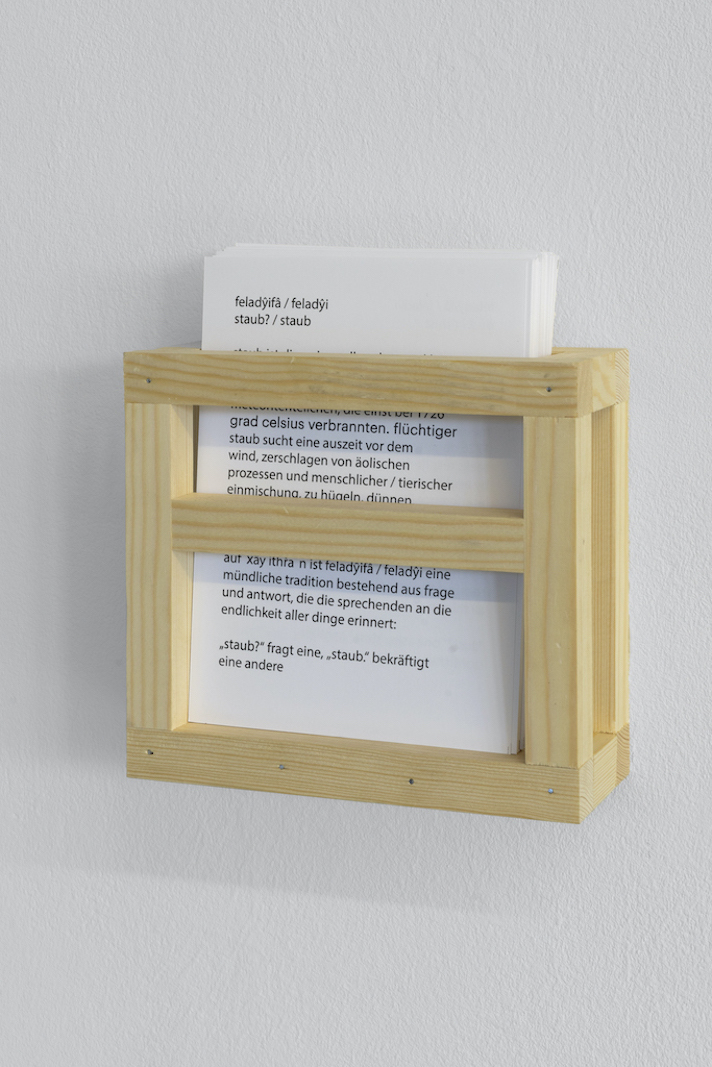 feladŷifâ / feladŷi
staub? / staub
staub ist die
meteoritenteilchen, die einst bei 1726
grad celsius verbrannten. flüchtiger
staub sucht eine auszeit vor dem
wind, zerschlagen von äolischen
prozessen und menschlicher / tierischer
einmischung, zu hügeln, dünnen
auf xay ithra n ist feladŷifâ / feladŷi eine
mündliche tradition bestehend aus frage
und antwort, die die sprechenden an die
endlichkeit aller dinge erinnert:
„staub?“ fragt eine, „staub.“ bekräftigt
eine andere